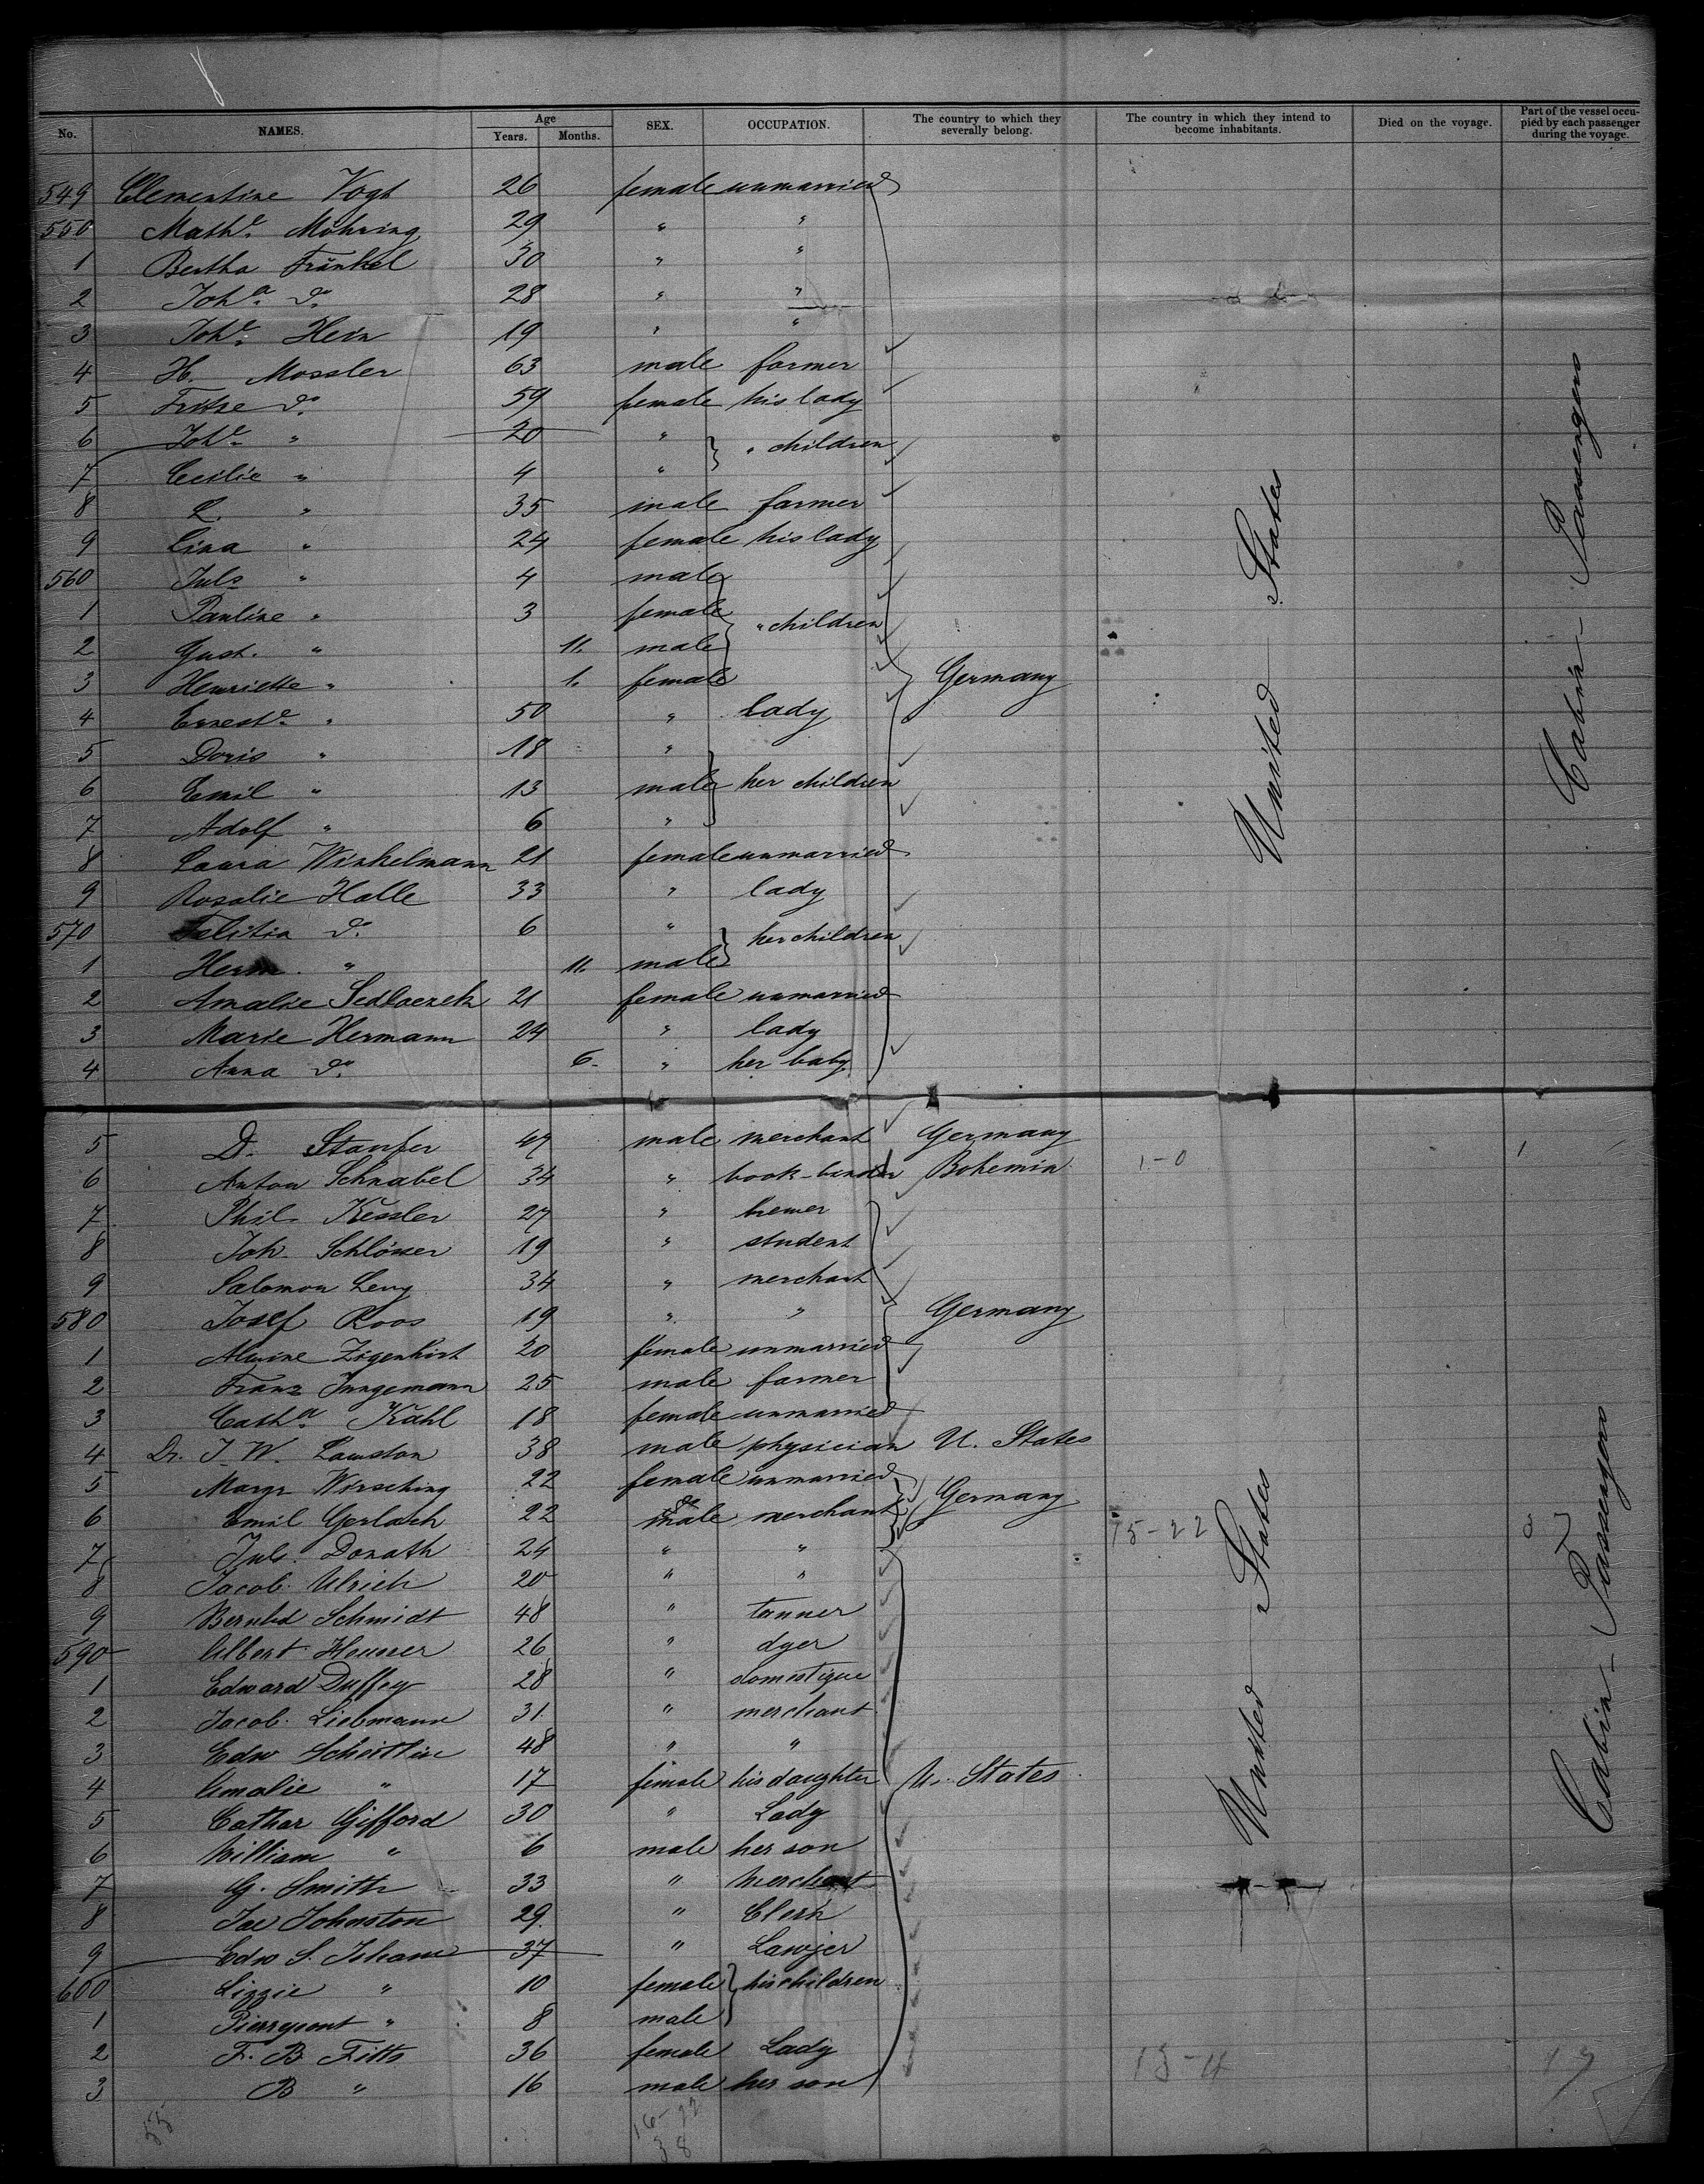 No. NAMES. Age Years. Months. SEX. OCCUPATION. The country to which they severally belong. The country in which they intend to become inhabitants. Died on the voyage. Part of the vessel occupied by each passenger during the voyage.
549 Clementine Vogt 26 female unmarried
550 Mathe. Möhring 29 " "
1 Bertha Fränkel 30 " "
2 Joha. do. 28 " "
3 Johe. Hein 19 " "
4 H. Mossler 63 male farmer
5 Fritze do. 59 female his lady
6 Johe. " 20 " " children
7 Cecilie " 4 "
8 L. " 35 male farmer
9 Lina " 24 female his lady
560 Juls " 4 male
1 Pauline " 3 female " children
2 Gust. " 11. male
3 Henriette " 1. female Germany
4 Erneste. " 50 " lady
5 Doris " 18 "
6 Emil " 13 male her children
7 Adolf " 6 "
8 Laura Winkelmann 21 female unmarried
9 Rosalie Halle 33 " lady
570 Felitia do. 6 " her children
1 Herm. " 11. male
2 Amalie Sedlaczek 21 female unmarried
3 Marie Hermann 24 " lady
4 Anna do. 6. " her baby
United States
Cabin Passengers
5 D. Staufer 47 male merchant Germany 1
6 Anton Schnabel 34 " book-binder Bohemia 1-0
7 Phil. Kessler 27 " brewer
8 Joh. Schlösser 19 " student
9 Salomon Levy 34 " merchant
580 Josef Roos 19 " " Germany
1 Alwine Zigenhirt 20 female unmarried
2 Franz Jungemann 25 male farmer
3 Catha. Kahl 18 female unmarried
4 Dr. J. W. Lawston 38 male physician U. States
5 Margr Wirsching 22 female unmarried Germany
6 Emil Gerlach 22 male merchant 15-22
7 Jul. Donath 24 " "
8 Jacob Ulrich 20 " "
9 Bernhd Schmidt 48 " tanner
590 Albert Heusser 26 " dyer
1 Edward Duffey 28 " domestique
2 Jacob Liebmann 31. " merchant
3 Edw Scheitlin 48 " "
4 Amalie " 17 female his daughter U. States
5 Cathar Gifford 30 " Lady
6 William " 6 male her son
7 G. Smith 33 " Merchant
8 Jac Johnston 29. " Clerk
9 Edw S. 37 " Lawjer
600 Lizzie " 10 female his children
1 Pierrepont " 8 male
2 F. B. Fitts 36 female Lady 13-4 17
3 B " 16 male her son
United States
Cabin Passengers
55 16-22
38